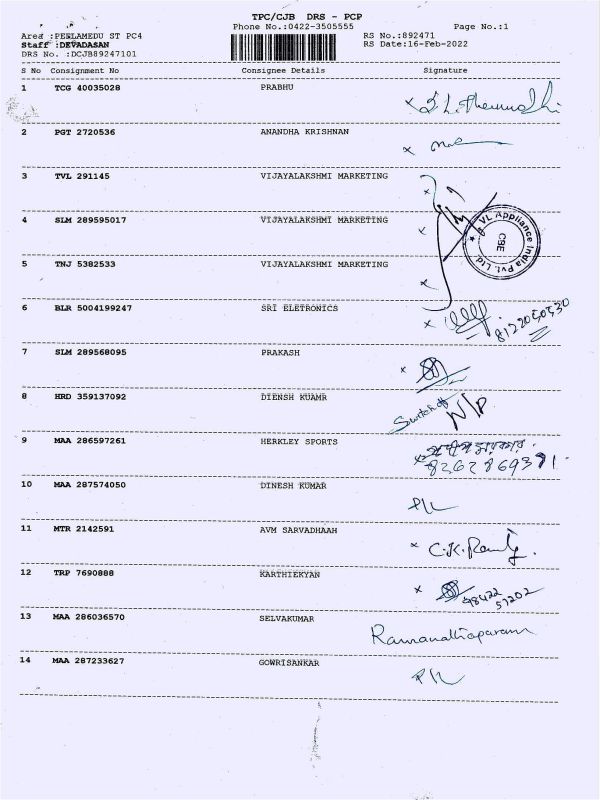 TPC/CJB DRS - PCP
Phone No.:0422-3505555 Page No.:1
Area :PEELAMEDU ST PC4 RS No.:892471
Staff :DEVADASAN RS Date:16-Feb-2022
DRS No. :DCJB89247101
S No Consignment No Consignee Details Signature
1 TCG 40035028 PRABHU
2 PGT 2720536 ANANDHA KRISHNAN
3 TVL 291145 VIJAYALAKSHMI MARKETING
4 SLM 289595017 VIJAYALAKSHMI MARKETING
VL Appliance India Pvt. Ltd.
CBE
5 TNJ 5382533 VIJAYALAKSHMI MARKETING
6 BLR 5004199247 SRI ELETRONICS
8122050530
7 SLM 289568095 PRAKASH
8 HRD 359137092 DIENSH KUAMR Switch off N/P
9 MAA 286597261 HERKLEY SPORTS
8262869371
10 MAA 287574050 DINESH KUMAR
11 MTR 2142591 AVM SARVADHAAH C.K.
12 TRP 7690888 KARTHIEKYAN 98422
57202
13 MAA 286036570 SELVAKUMAR Ramanathapuram
14 MAA 287233627 GOWRISANKAR